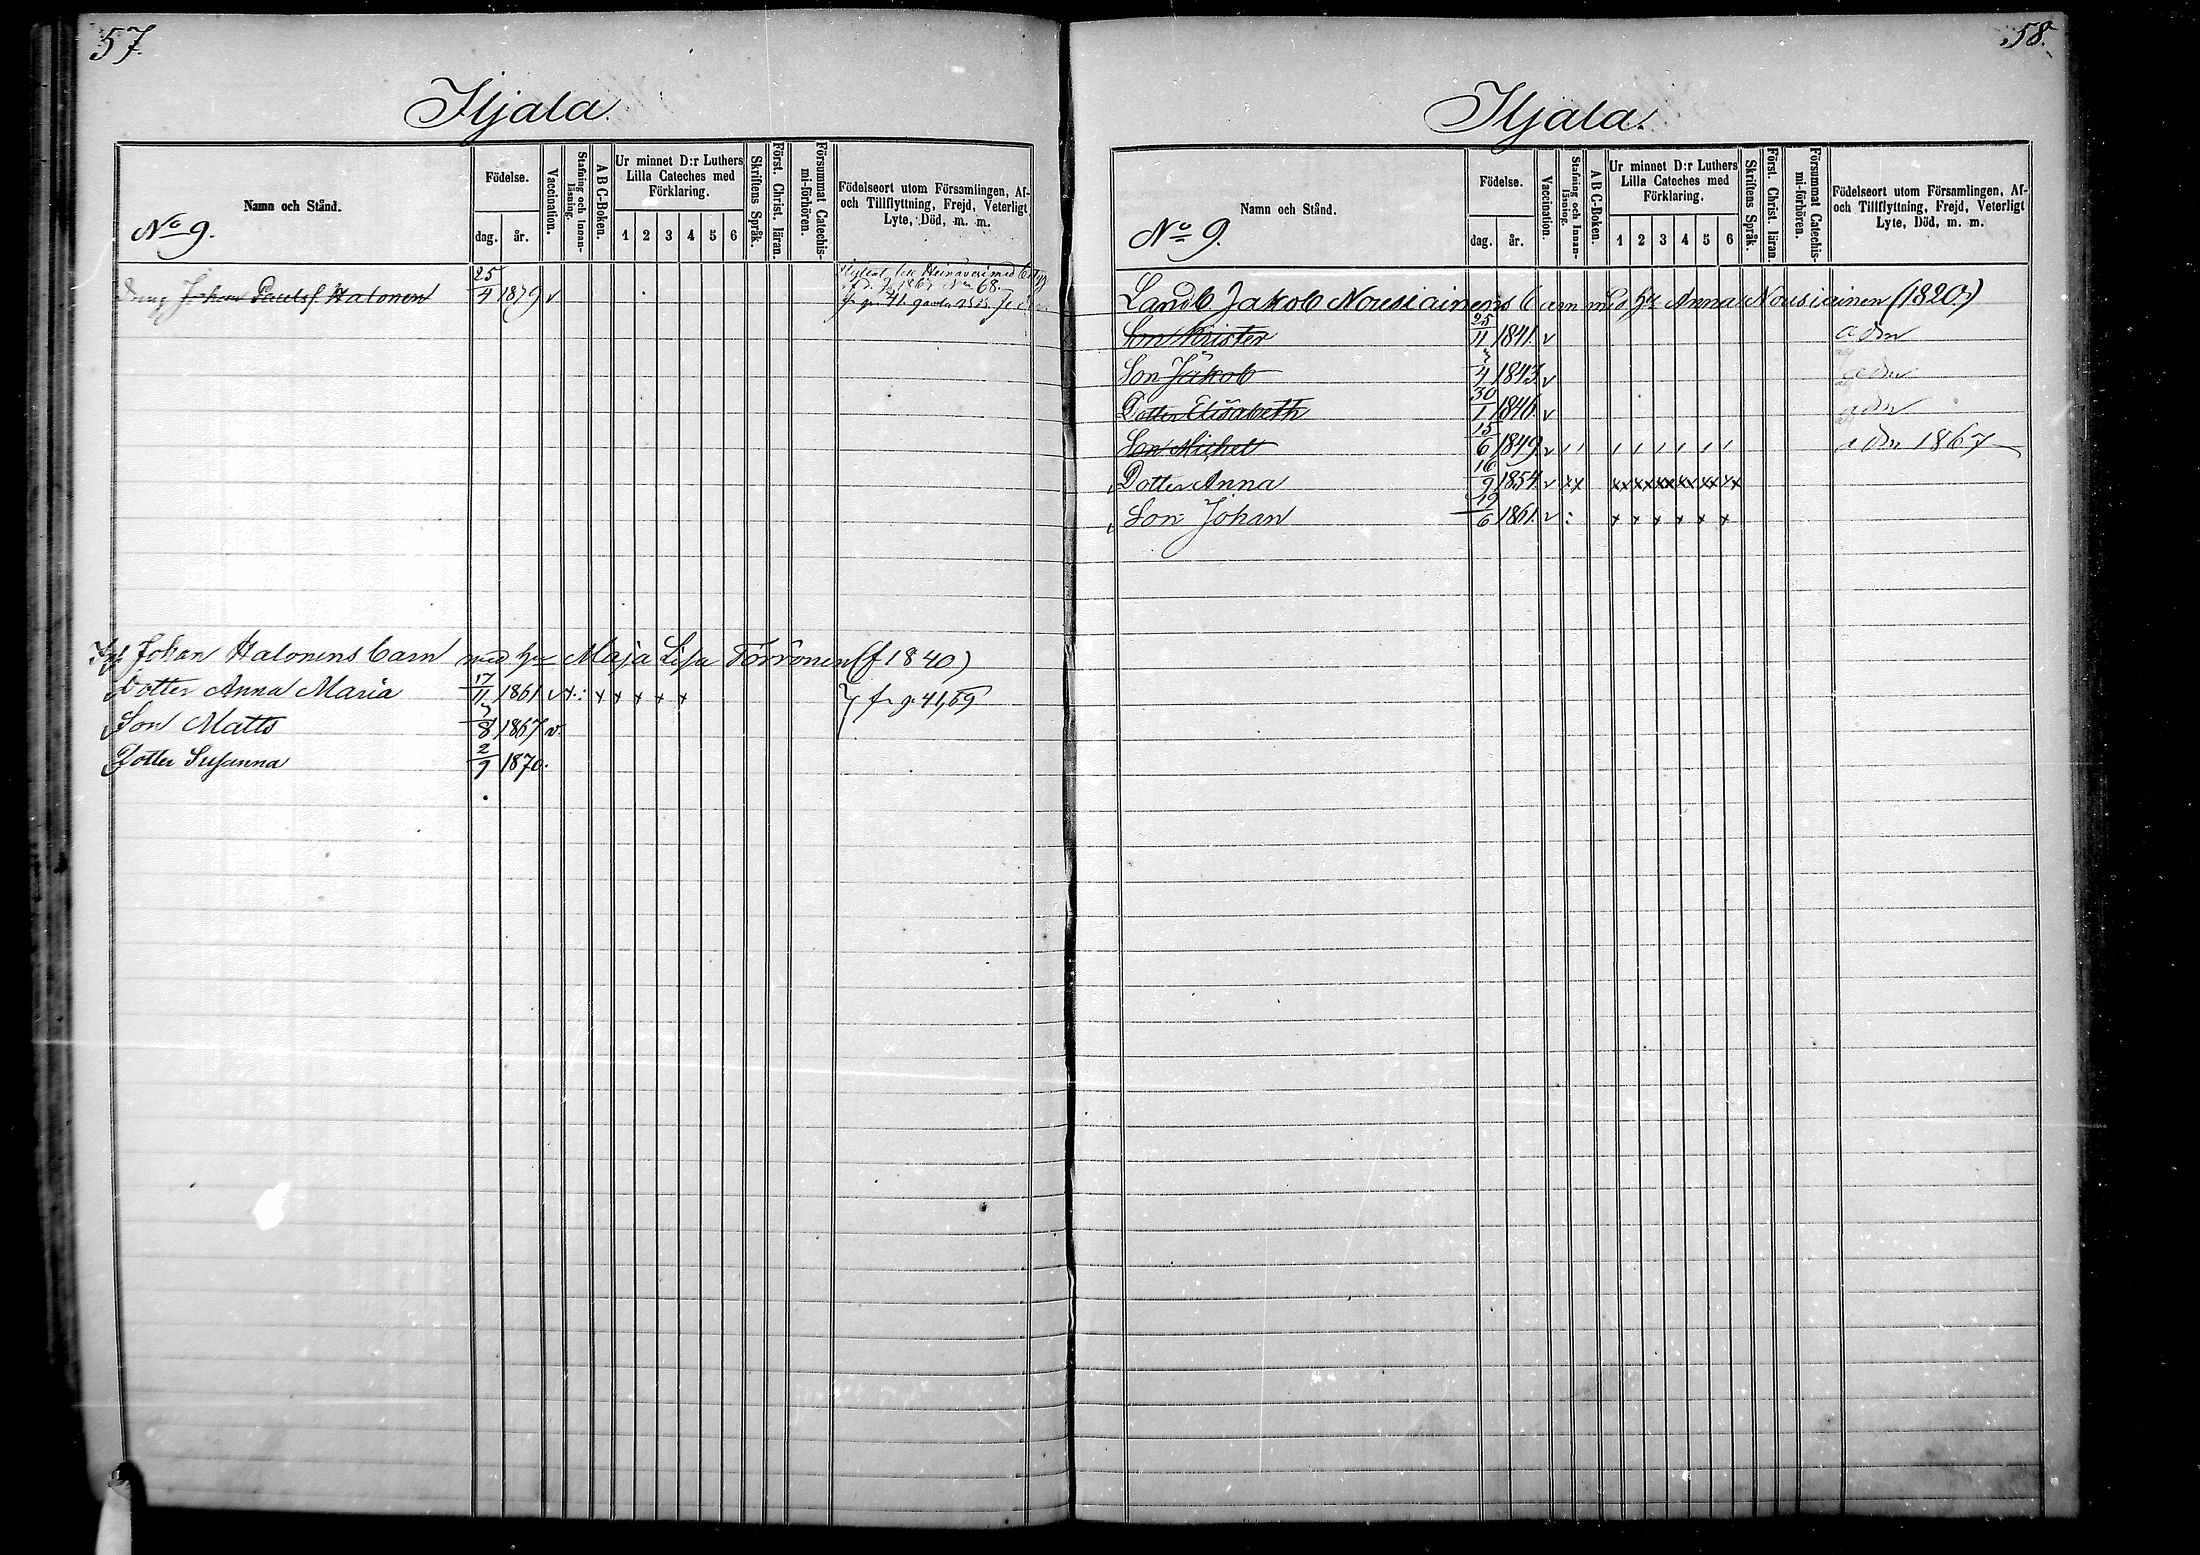 57.
Iljala.
Namn och Stånd.
No 9.
Födelse.
dag.
år.
Vaccination.
Stafning och Innanläsning.
A B C-Boken.
Ur minnet D:r Luthers
Lilla Cateches med
Förklaring.
1 2 3 4 5 6
Skriftens Språk.
Först. Christ. läran.
Försummat Catechismi-förhören.
Födelseort utom Församlingen, Af-
och Tillflyttning, Frejd, Veterligt
Lyte, Död, m. m.
Dreng Johan Paulsf Halonen 25/4 1879 v
Johan Halonens barn med hu Maja Lisa Torrönen (f 1840)
Dotter Anna Maria 17/11 1861 v x : x x x x x } fr p. 41,69
Son Matts 3/8 1867 v.
Dotter Susanna 2/9 1870.
58.
Iljala.
Namn och Stånd.
No 9.
Födelse.
dag.
år.
Vaccination.
Stafning och Innanläsning.
A B C-Boken.
Ur minnet D:r Luthers
Lilla Cateches med
Förklaring.
1 2 3 4 5 6
Skriftens Språk.
Först. Christ. läran.
Försummat Catechismi-förhören.
Födelseort utom Församlingen, Af-
och Tillflyttning, Frejd, Veterligt
Lyte, Död, m. m.
Landb Jakob Nousiainens barn med hu Anna Nousiainen (1820)
Son Krister 25/11 1841. v adm
Son Jakob 3/4 1843 v adm
Dotter Elisabeth 30/1 1846. v adm
Son Michel 15/6 1849 v adm 1867
Dotter Anna 16/9 1854 v xx xx xx xx xx xx xx
Son Johan 19/6 1861. v : x x x x x x